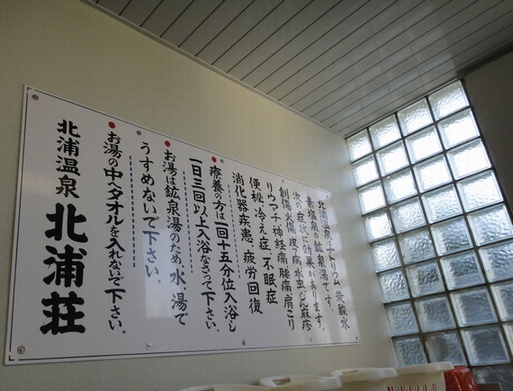 北浦温泉ナトリウム炭酸水
素塩泉の鉱泉湯です。
次の症状に効果があります。
創傷火傷皮フ病水虫じん麻疹
リウマチ神経痛腰痛肩こり
便秘冷え症不眠症
消化器疾患、疲労回復
療養の方は一回十五分位入浴し
一日三回以上入浴なさって下さい。
お湯は鉱泉湯のため水、湯で
うすめないで下さい。
お湯の中へタオルを入れないで下さい。
北浦温泉 北浦荘